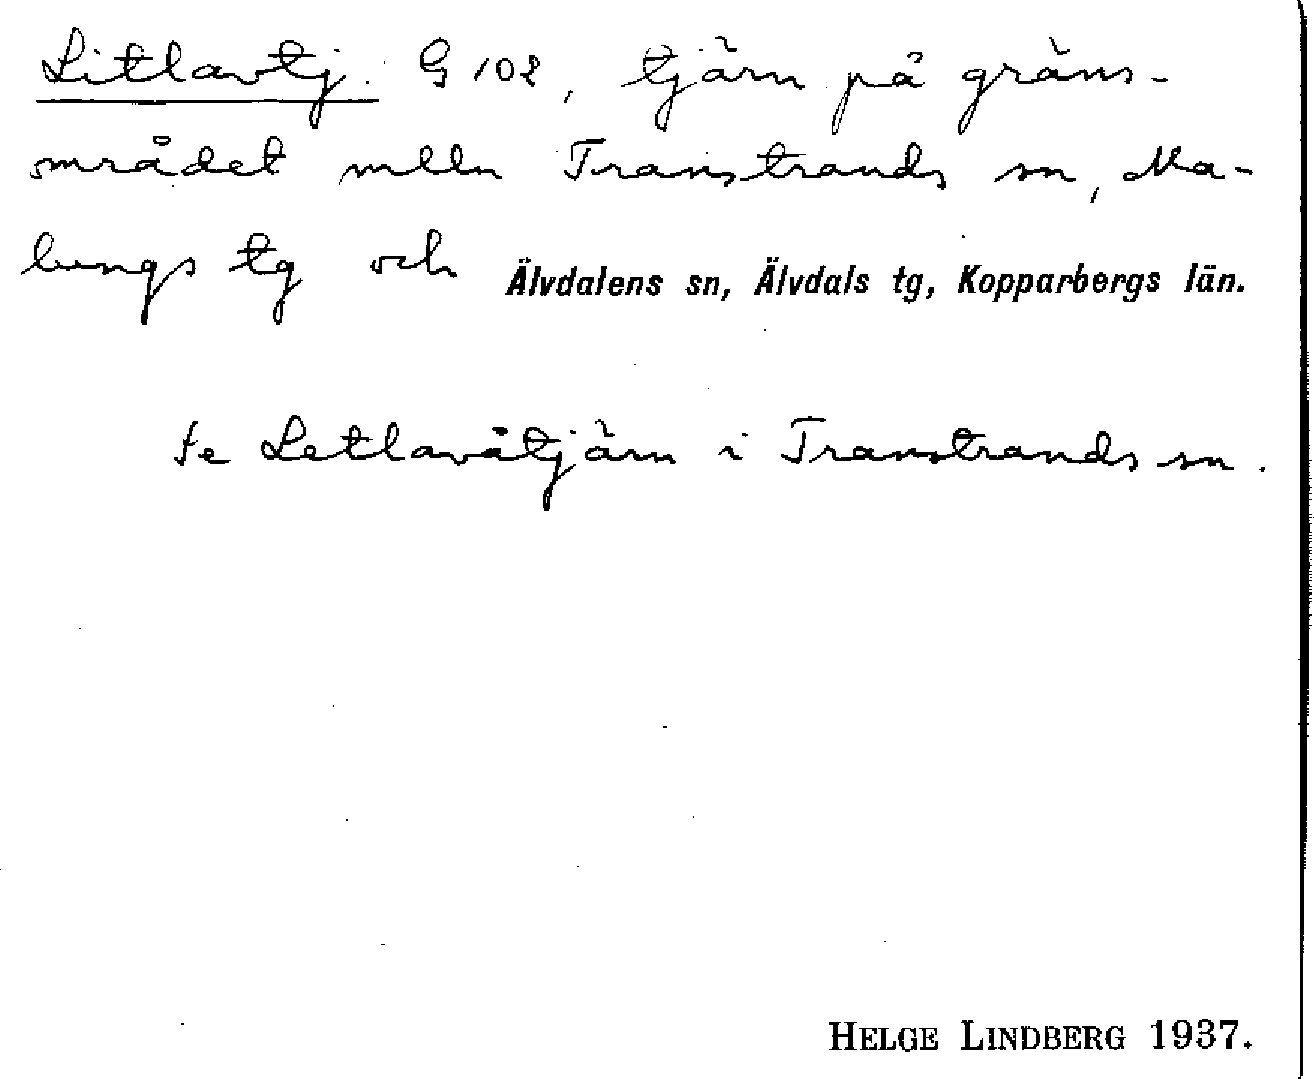 Litlavtj. G 102, tjärn på gräns-
området mlln Transtrands sn, Ma-
lungs tg och Älvdalens sn, Älvdals tg, Kopparbergs län.
se Letlavåtjärn i Transtrands sn.
HELGE LINDBERG 1937.